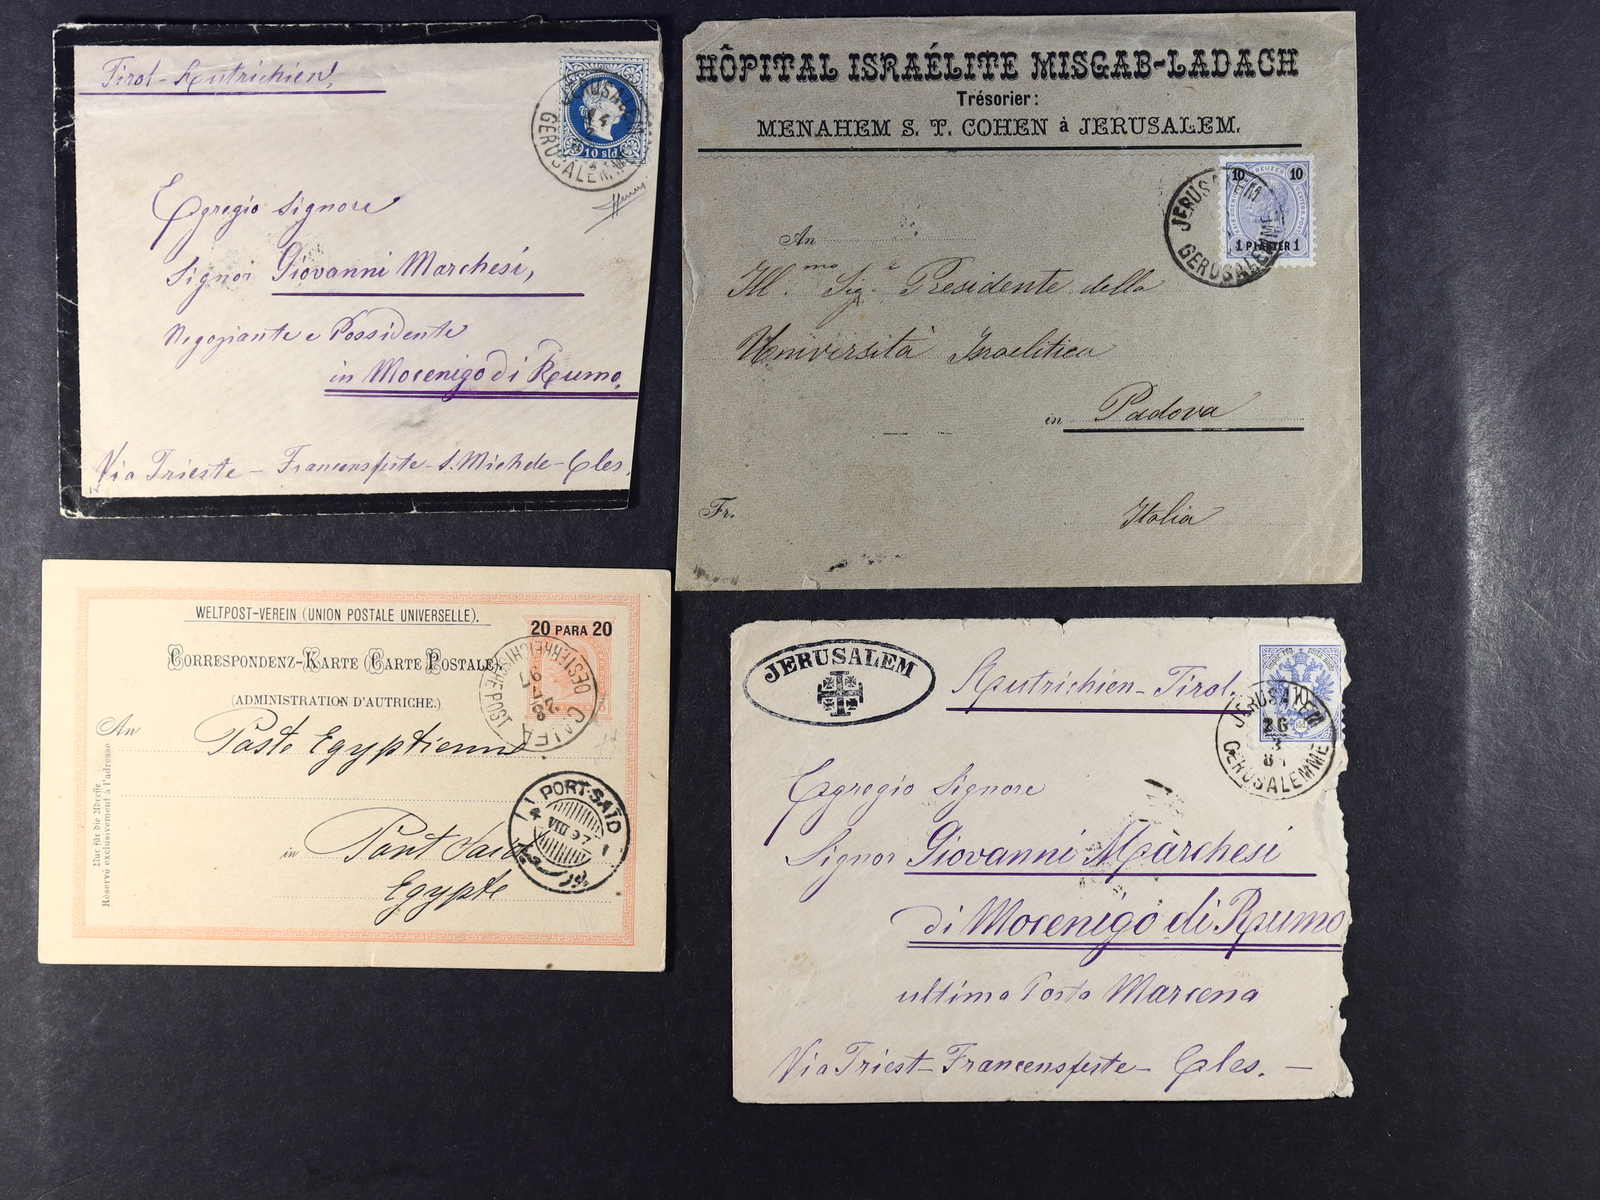 Tirol-Autrichien!
JERUSALEM
GERUSALEMME
10 sld.
Egregio Signore
Signor Giovanni Marchesi,
Negoziante e Possidente
in Mocenigo di Rumo,
Via Trieste - Francensfeste - S. Michele - Cles.
HÔPITAL ISRAÉLITE MISGAB-LADACH
Trésorier:
MENAHEM S. T. COHEN à JERUSALEM.
10 10
1 PIASTER 1
JERUSALEM
GERUSALEMME
An
Ill.mo Sig.e Presidente della
Università Israelitica
in Padova
Fr.
Italia
WELTPOST-VEREIN (UNION POSTALE UNIVERSELLE).
20 PARA 20
CORRESPONDENZ-KARTE (CARTE POSTALE).
(ADMINISTRATION D'AUTRICHE.)
CAIFA
OESTERREICHISCHE POST
An Poste Egyptienne
in Port Said
Egypte
Nur für die Adresse
Réservé exclusivement à l'adresse
PORT-SAID
VIII 97
JERUSALEM
Autrichien-Tirol,
JERUSALEM
26
3
GERUSALEMME
Egregio Signore
Signor Giovanni Marchesi
di Mocenigo di Rumo
ultima Posta Marcena
Via Triest - Francensfeste - Cles. -